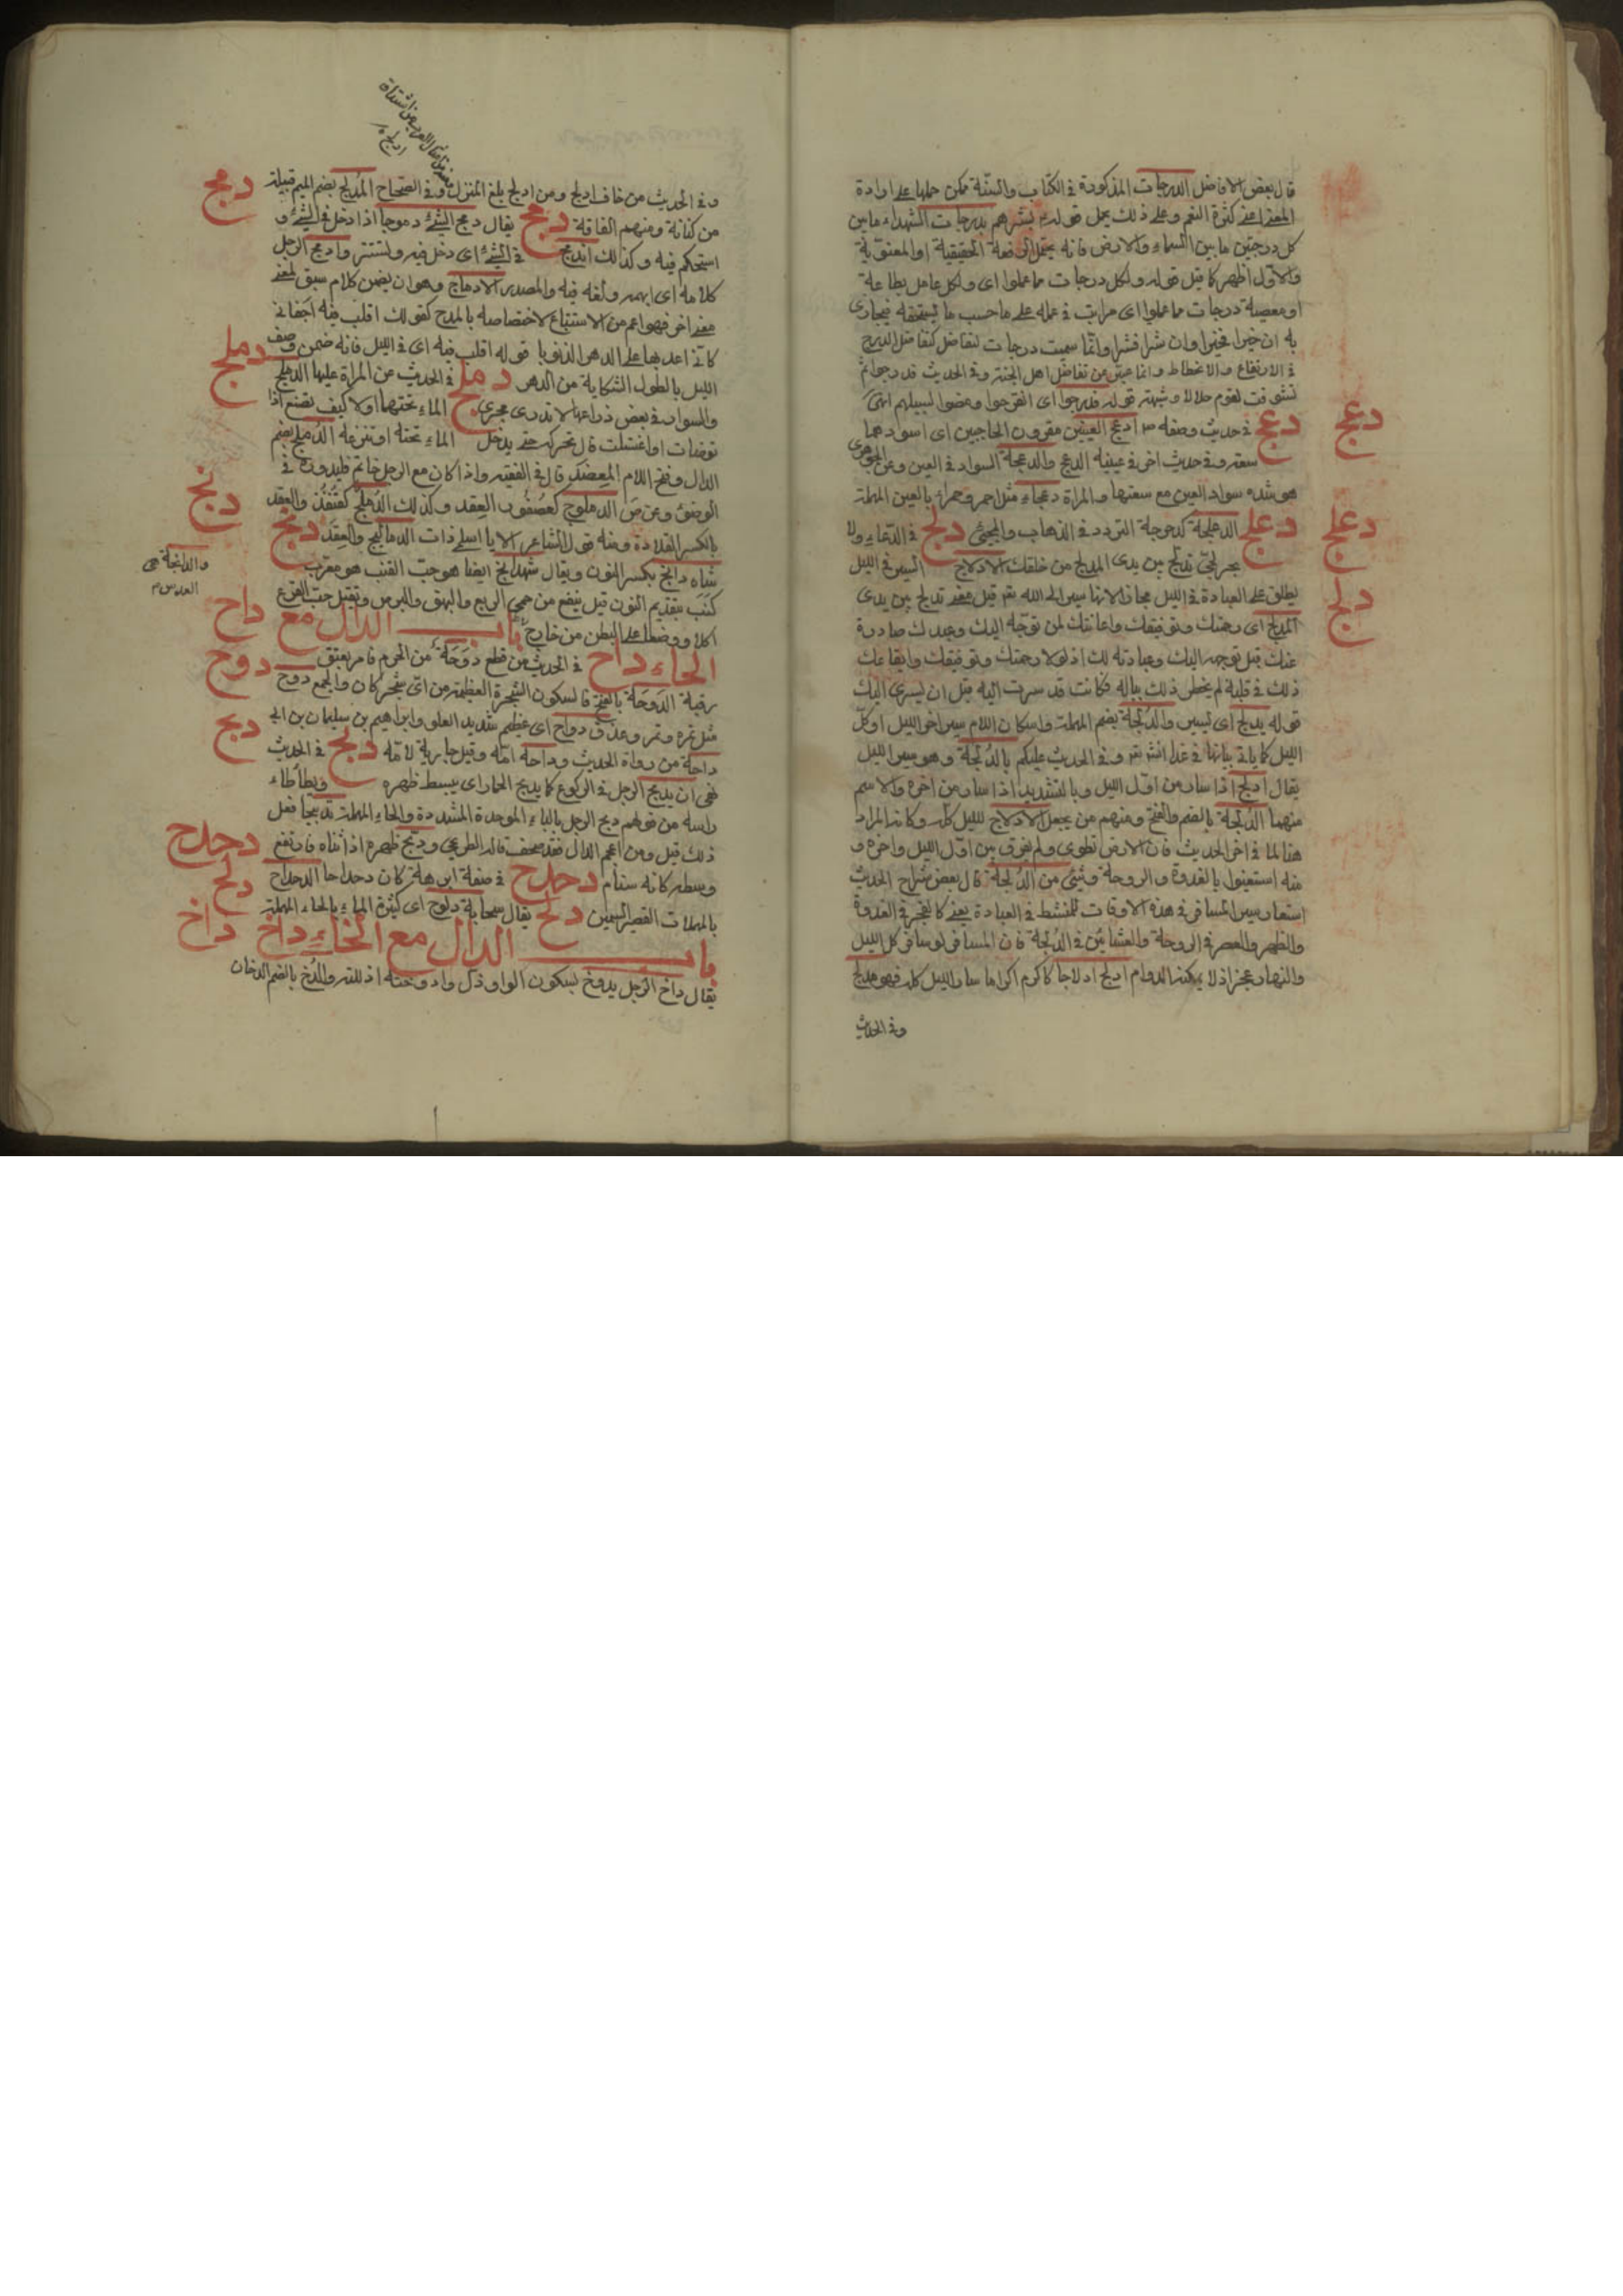 قال بعض الافاضل الدرجات المذكورة فى الكتاب والسنة ممكن حملها على ارادة
المعنى كثرة النعم وعلى ذلك يحمل قوله بشرهم بدرجات الشهداء ما بين
كل درجتين ما بين السماء والارض فانه يحتمل الرفعة الحقيقية او المعنوية
والاول اظهر كما قيل قوله ولكل درجات مما عملوا اى ولكل عامل بطاعة
او معصية درجات مما عملوا اى مراتب فى عمله على ما حسب ما يستحقه فيجازى
به ان خيرا فخيرا وان شرا فشرا وانما سميت درجات لتفاضل كتفاضل الدرج
فى الارتفاع والانحطاط وانما عبر عن تفاضل اهل الجنة وفى الحديث قد درجوا ثم
لقوم حلالا وشبهة قوله قد درجوا اى انقرضوا ومضوا لسبيلهم انتهى
دعج فى حديث وصفه ص ادعج العينين مقرون الحاجبين اى اسودهما
سعته وفى حديث اخر فى عينيه الدعج والدعجة السواد فى العين وعن الجوهرى
هو شدة سواد العين مع سعتها والمراة دعجاء مثل احمر وحمراء بالعين المهملة
دعلج الدعلجة كدحرجة التردد فى الذهاب والمجيئ دلج فى الدعاء ولا
بحر لجى تدلج بين يدى المدلج من خلقك الادلاج السير فى الليل
يطلق على العبادة فى الليل مجازا لانها سير الى الله تع قيل معنى تدلج بين يدى
المدلج اى رحمتك وتوفيقك واعانتك لمن توجه اليك وعبدك صادرة
عنك قبل توجهه اليك وعبادته لك اذ لولا رحمتك وتوفيقك وايقاعك
ذلك فى قلبه لم يخطر ذلك بباله فكانت قد سرت اليه قبل ان يسرى اليك
قوله يدلج اى يسير والدلجة بضم المهملة واسكان اللام سير اخر الليل او كل
الليل كما ياتى بيانها فى غدا انش تع وفى الحديث عليكم بالدلجة وهو سير الليل
يقال ادلج اذا سار من اول الليل وبالتشديد اذا سار من اخره والاسم
منهما الدلجة بالضم والفتح ومنهم من يجعل الادلاج لليل كله وكانه المراد
هنا لما فى اخر الحديث فان الارض تطوى ولم يفرق بين اول الليل واخره و
منه استعينوا بالغدوة والروحة وشيئ من الدلجة قال بعض شراح الحديث
استعار سير المسافر فى هذه الاوقات للمنشط فى العبادة يعنى كالفجر فى الغدوة
والظهر والعصر فى الروحة والعشائين فى الدلجة فان المسافر لو سافر كل الليل
والنهار عجز اذ لا يمكنه الدوام ادلج ادلاجا كاكرم اكراما سار الليل كله فهو مدلج
وفى الحديث
دعج
دعلج
دلج
وفى الحديث من خاف ادلج ومن ادلج بلغ المنزل وفى الصحاح المدلج بضم الميم قبيلة
من كنانة ومنهم القافة دمج يقال دمج الشيئ دموجا اذا دخل فى الشيئ و
استحكم فيه وكذلك اندمج فى الشيئ اى دخل فيه وتستتر وادمج الرجل
كلامه اى ابهمه ولغه فيه والمصدر الادماج وهو ان يضمن كلام سبق لمعنى
معنى اخر فهو اعم من الاستتباع لاختصاصه بالمدح كقولك اقلب فيه اجفانى
كانى اعد بها على الدهر الذنوبا قوله اقلب فيه اى فى الليل فانه ضمن وصف
الليل بالطول الشكاية من الدهر دملج فى الحديث عن المراة عليها الدملج
والسوار فى بعض ذراعها لا تدرى يجرى الماء تحتها او لا كيف تصنع اذا
توضات او اغتسلت قال تحركه حتى يدخل الماء تحته او تنزعه الدملج بضم
الدال وفتح اللام المعضد قال فى الفقيه واذا كان مع الرجل خاتم فليدوره فى
الوضوء وعن ض الدملوج كعصفور العضد وكذلك الدملج كقنفذ والعقد
بالكسر القلادة ومنه قول الشاعر الا يا اسلمى ذات الدماليج والعقد دنج
شاه دانج بكسر النون ويقال شهدانج ايضا هو حب القنب هو معرب
كنب بتقديم النون قيل ينفع من حمى الربع والبهق والبرص ويقتل حب القرع
اكلا ووضعا على البطن من خارج باب الدال مع
الحاء داح فى الحديث من قطع دوحة من الحرم فامر بعتق
رقبة الدوحة بالفتح فالسكون الشجرة العظيمة من اى شجر كان والجمع دوح
مثل تمرة وتمر وعذق دواح اى عظيم شديد العلو وابراهيم بن سليمان بن ابى
داحة من رواة الحديث وداحة امه وقيل جارية لامه دبح فى الحديث
نهى ان يدبح الرجل فى الركوع كما يدبح الحمار اى يبسط ظهره ويطأطاء
راسه من قولهم دبح الرجل بالباء الموحدة المشددة والحاء المهملة تدبيحا فعل
ذلك قيل ومن اعجم الدال فقد صحف قاله الطريحى ودبح ظهره اذا ثناه فارتفع
وسطه كانه سنام دحدح فى صفة ابرهة كان دحداحا الدحداح
بالمهملات القصير السمين دلح يقال سحابة دلوح اى كثيرة الماء بالحاء المهملة
باب الدال مع الخاء داخ
يقال داخ الرجل يدوخ بسكون الواو ذل وادوخته اذللته والدخ بالضم الدخان
دمج
دملج
دنج
والدانجة هى
العدس م
داح
دوح
دبح
دحدح
دلح
داخ